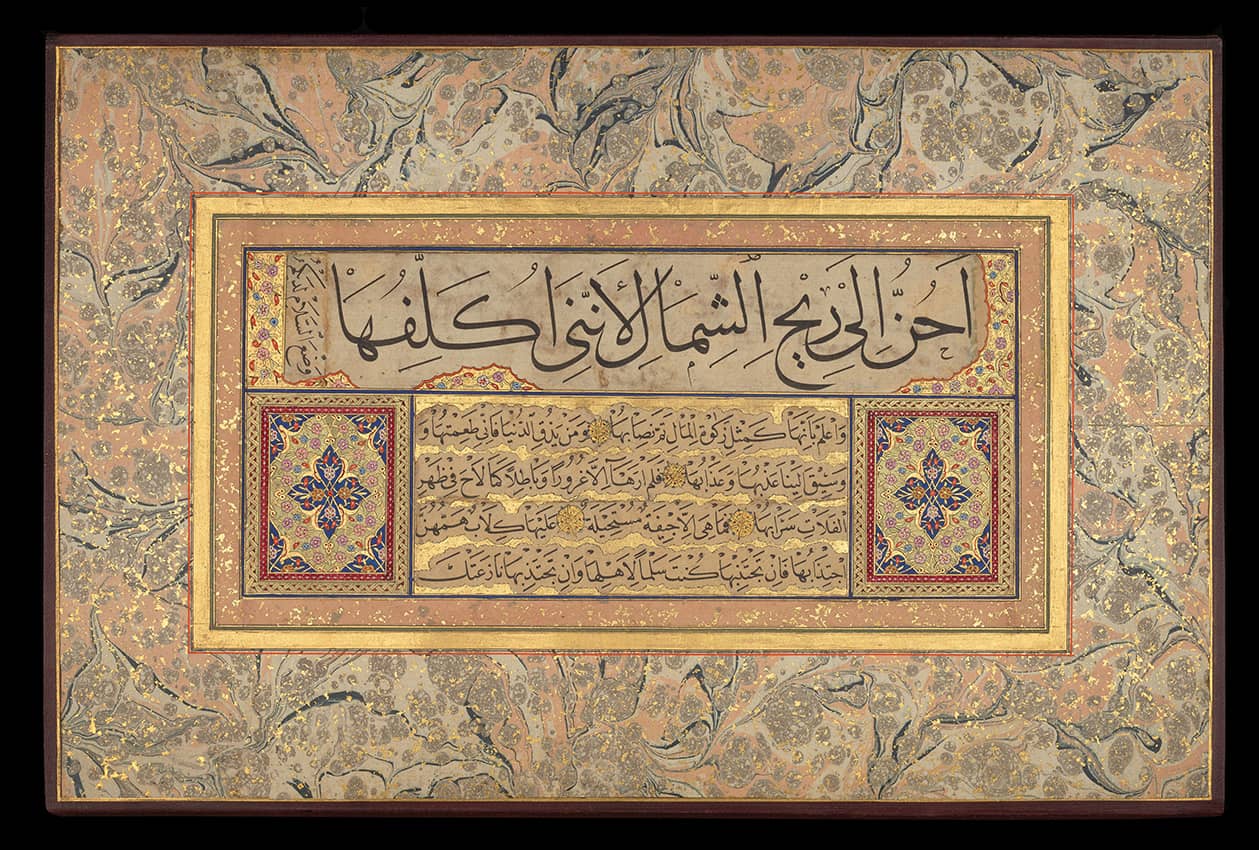 اَحِنُّ اِلَى رِيحِ الشِّمَالِ لِأَنَّنِي اُكَلِّفُهَا
واعلم بانها كمثل زكوة المال تم نصابها ومن يذق الدنيا فاني طعمتها و
وسيق الينا عذبها وعذابها فلم ارها الا غرورا وباطلا كما لاح في ظهر
الفلات سرابها فما هي الا جيفة مستحيلة عليها كلاب همهن
اجتذابها فان تجتنبها كنت سلما لاهلها وان تجتذبها نازعتك